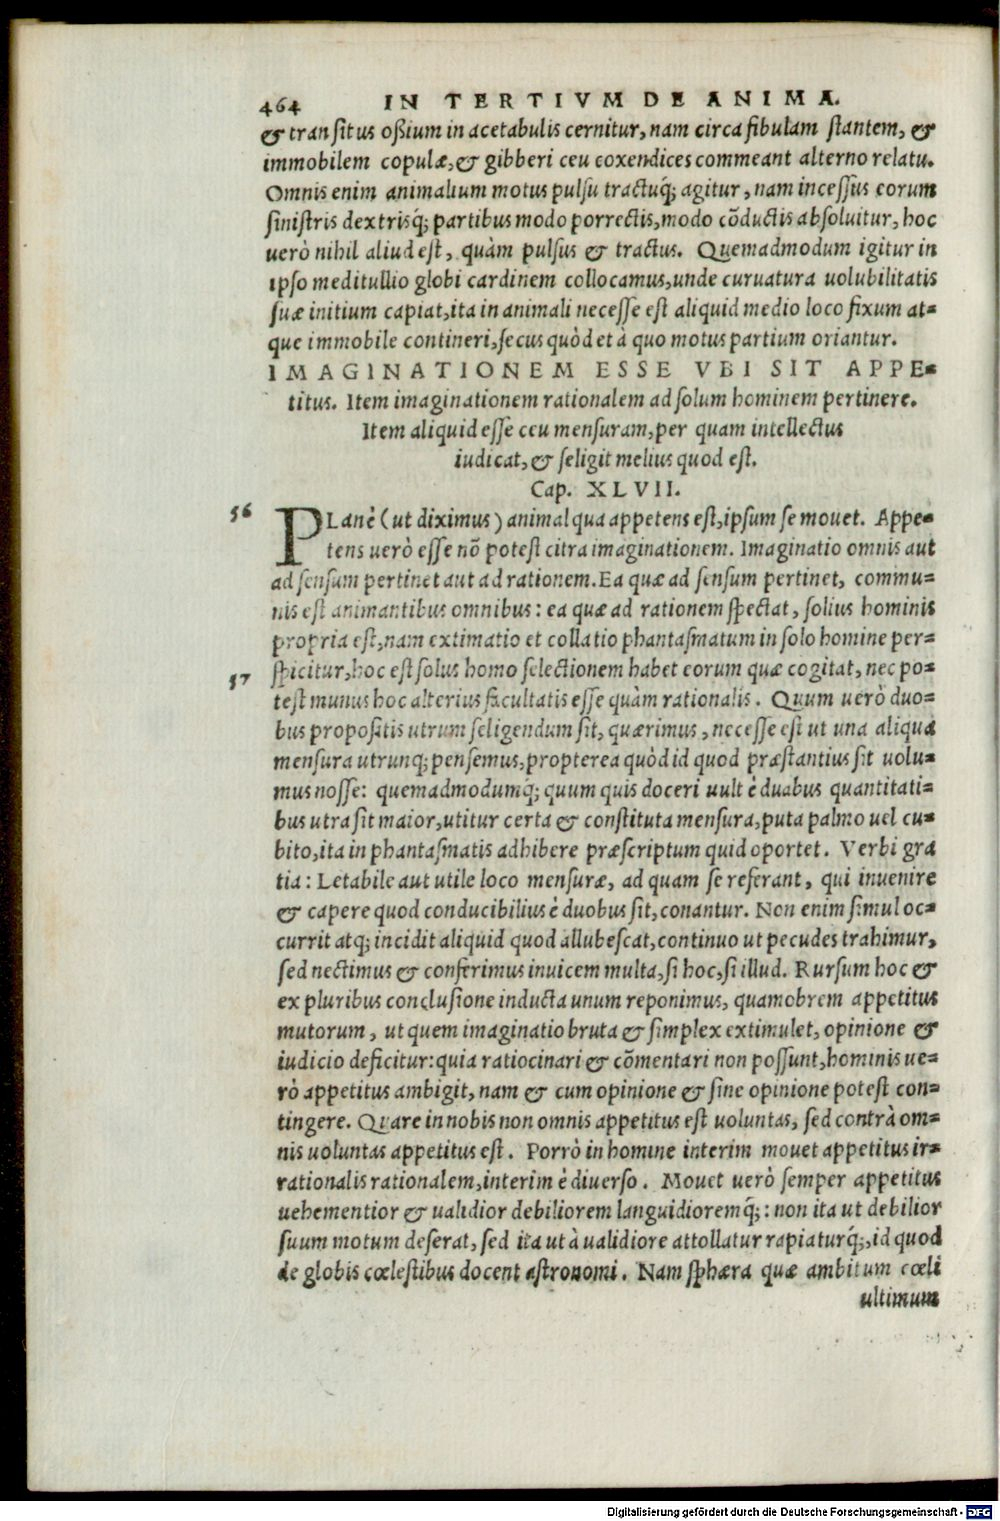 464 IN TERTIVM DE ANIMA.
& transitus oßium in acetabulis cernitur, nam circa fibulam stantem, &
immobilem copulæ, & gibberi ceu coxendices commeant alterno relatu.
Omnis enim animalium motus pulsu tractuq́; agitur, nam incessus eorum
sinistris dextrisq́; partibus modo porrectis, modo cõductis absoluitur, hoc
uerò nihil aliud est, quàm pulsus & tractus. Quemadmodum igitur in
ipso meditullio globi cardinem collocamus, unde curuatura uolubilitatis
suæ initium capiat, ita in animali necesse est aliquid medio loco fixum at=
que immobile contineri, secus quòd et à quo motus partium oriantur.
IMAGINATIONEM ESSE VBI SIT APPE=
titus. Item imaginationem rationalem ad solum hominem pertinere.
Item aliquid esse ceu mensuram, per quam intellectus
iudicat, & seligit melius quod est.
Cap. XLVII.
56 PLanè (ut diximus) animal qua appetens est, ipsum se mouet. Appe=
tens uerò esse nõ potest citra imaginationem. Imaginatio omnis aut
ad sensum pertinet aut ad rationem. Ea quæ ad sensum pertinet, commu=
nis est animantibus omnibus: ea quæ ad rationem spectat, solius hominis
propria est, nam extimatio et collatio phantasmatum in solo homine per=
spicitur, hoc est solus homo selectionem habet eorum quæ cogitat, nec po=
57 test munus hoc alterius facultatis esse quàm rationalis. Quum uerò duo=
bus propositis utrum seligendum sit, quærimus, necesse est ut una aliqua
mensura utrunq; pensemus, propterea quòd id quod præstantius sit uolu=
mus nosse: quemadmodumq́; quum quis doceri uult è duabus quantitati=
bus utra sit maior, utitur certa & constituta mensura, puta palmo uel cu=
bito, ita in phantasmatis adhibere præscriptum quid oportet. Verbi gra
tia: Letabile aut utile loco mensuræ, ad quam se referant, qui inuenire
& capere quod conducibilius è duobus sit, conantur. Non enim simul oc=
currit atq; incidit aliquid quod allubescat, continuo ut pecudes trahimur,
sed nectimus & conferimus inuicem multa, si hoc, si illud. Rursum hoc &
ex pluribus conclusione inducta unum reponimus, quamobrem appetitus
mutorum, ut quem imaginatio bruta & simplex extimulet, opinione &
iudicio deficitur: quia ratiocinari & cõmentari non possunt, hominis ue=
rò appetitus ambigit, nam & cum opinione & sine opinione potest con=
tingere. Quare in nobis non omnis appetitus est uoluntas, sed contrà om=
nis uoluntas appetitus est. Porrò in homine interim mouet appetitus ir=
rationalis rationalem, interim è diuerso. Mouet uerò semper appetitus
uehementior & ualidior debiliorem languidioremq́;: non ita ut debilior
suum motum deserat, sed ita ut à ualidiore attollatur rapiaturq́;, id quod
de globis cœlestibus docent astronomi. Nam sphæra quæ ambitum cœli
ultimum
Digitalisierung gefördert durch die Deutsche Forschungsgemeinschaft - DFG